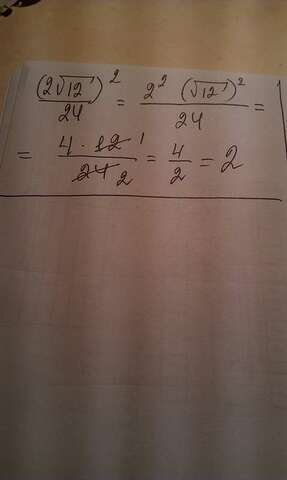 (2√12)²/24 = 2² (√12)²/24 =
= 4 · 12 1/24 2 = 4/2 = 2